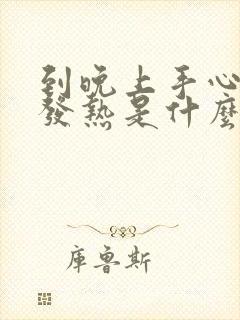 到晚上手心
發熱是什麼
庫魯斯